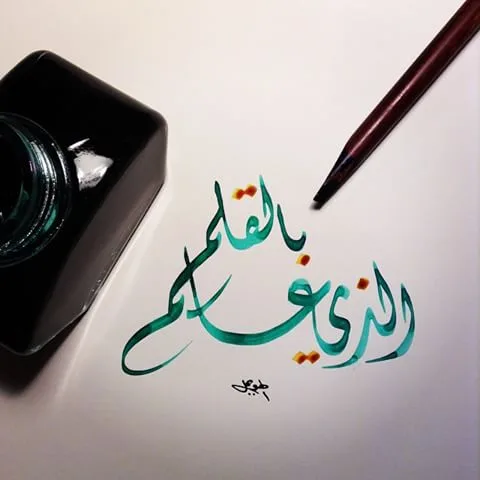 الذي علم
بالقلم